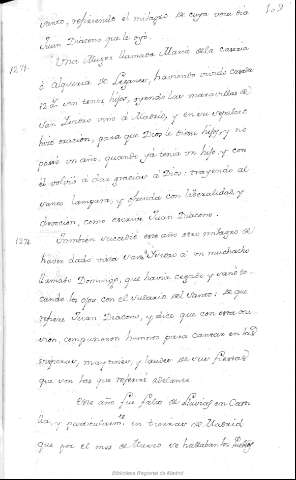 109
viento, refiriendo el milagro de cuya voca tra
Juan Diacono que le oyó.
1271. Una Muger llamada Maria de la Carrera
ó Alqueria de Leganes, haviendo vivido casada
12 as. sin tener hijos, oyendo las maravillas de
San Ysidro vino á Madrid, y en su sepulcro
hizo oracion, para que Dios le diese hijo, y no
pasó un año, quando ya tenia un hijo, y con
el volvió á dar gracias á Dios: trayendo al
Santo lampara, y ofrenda con liberalidad y
devocion, como escrive Juan Diacono.
1271. Tambien succedió este año otro milagro de
haver dado vista San Ysidro á un muchacho
llamado Domingo, que havia cegado y sanó to-
cando los ojos con el Sudario del Santo: de que
refiere Juan Diacono, y dice que con esta oca
sion, compusieron hymnos para cantar en las
visperas, maytines, y laudes de sus fiestas
que son los que referiré adelante.
Este año fue falto de lluvias en Casti
lla, y particularmte. en tierras de Madrid
que por el mes de Marzo se hallaban los Pueblos
Biblioteca Regional de Madrid